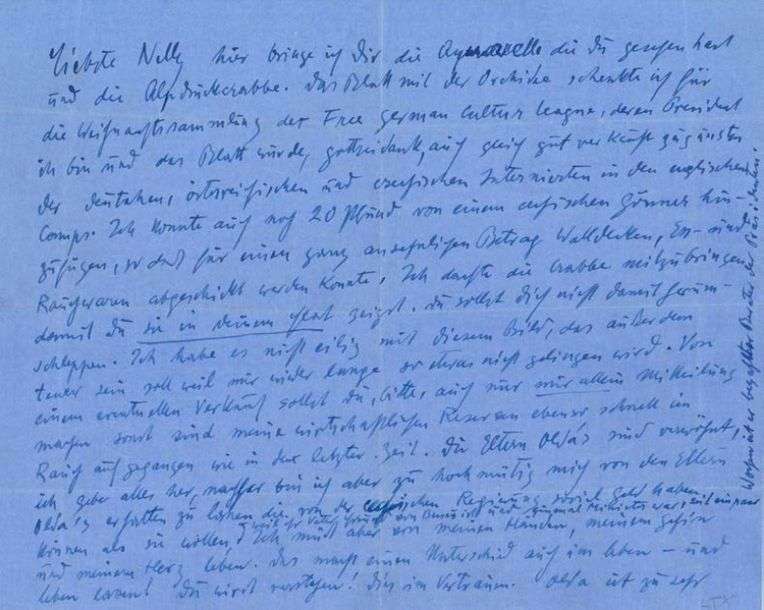 Liebste Nelly hier bringe ich Dir die Aquarelle die du gesehen hast
und die Alpdruckkrabbe. Das Blatt mit der Orchidee schenkte ich für
die Weihnachtssammlung der Free German Culture League, deren President
ich bin und das Blatt wurde, gottseidank, auch gleich gut verkauft zugunsten
der deutschen, österreichischen und Internierten in den englischen
Camps. Ich konnte auch noch 20 Pfund von einem Gönner hin-
zufügen, so daß für einen ganz ansehnlichen Betrag Wolldecken, Ess- und
Rauchwaren abgeschickt werden konnte. Ich dachte die Crabbe mitzubringen
damit du sie in deinem zeigst. du sollst dich nicht damit herum-
schleppen. Ich habe es nicht eilig mit diesem Bild, das außerdem
teuer sein soll weil mir wieder lange so etwas nicht gelingen wird. Von
einem eventuellen Verkauf sollst du, bitte, auch nur mir allein Mitteilung
machen sonst sind meine wirtschaftlichen Reserven ebenso schnell in
Rauch aufgegangen wie in der letzten Zeit. Die Eltern Olda's sind verwöhnt,
ich gebe alles her, bin ich aber zu hochmütig mich von den Eltern
Olda's erhalten zu lassen die von der Regierung soviel Geld haben
können als sie wollen. Ich muß aber von meinen Händen, meinem Gehirn
weil ihr Vater von und einmal Minister war, seit ein paar
und meinem Herz leben. Das macht einen Unterschied auch im leben – und
leben lassen! Du wirst verstehen! Dies im Vertrauen. Olda ist zu sehr
Wochen ist er bezahlter Berater des Präsidenten.